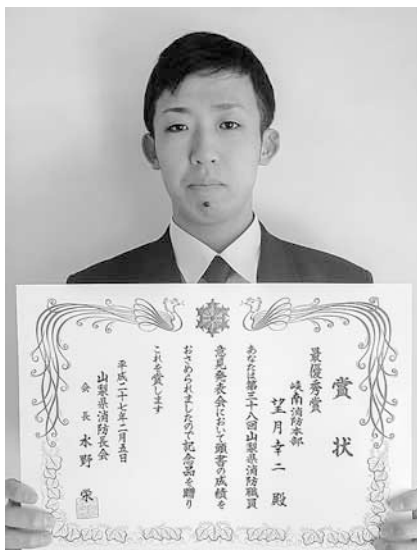 賞状
最優秀賞
峡南消防本部
望月幸二 殿
あなたは第三十八回山梨県消防職員
意見発表会において頭書の成績を
おさめられましたので記念品を贈り
これを賞します
平成二十七年二月五日
山梨県消防長会
会長 水野 栄